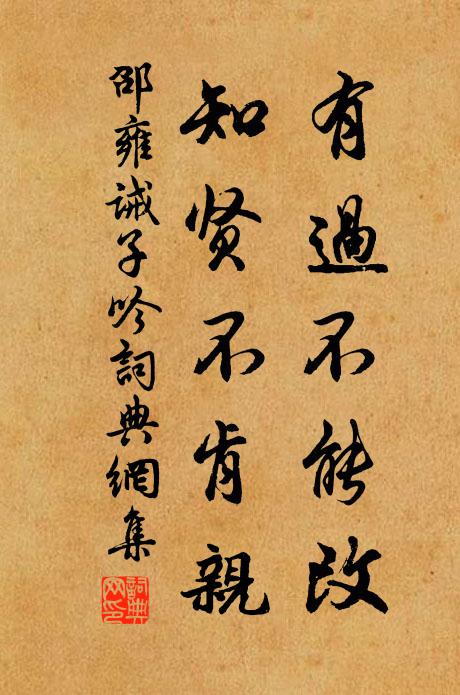 有過不能改
知贤不肯親
邵雍诫子吟詞典網集
詞典網印